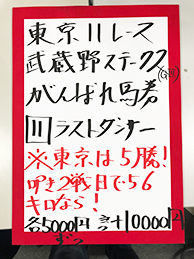 東京11レース
武蔵野ステークス
(GⅢ)
がんばれ馬券
11 ラストダンサー
※東京は5勝!
叩き2戦目で56
キロなら!
各5000円 計10000円
ずつ